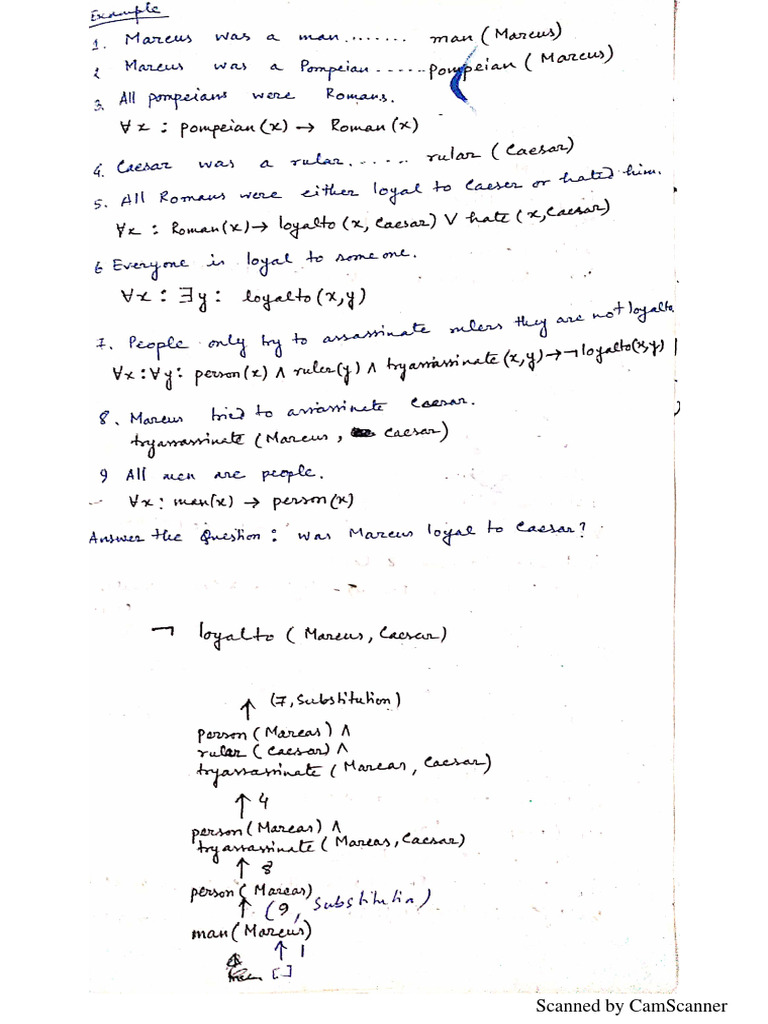 Example
1. Marcus was a man........ man (Marcus)
2 Marcus was a Pompeian......pompeian (Marcus)
3. All pompeians were Romans.
∀x : pompeian(x) → Roman(x)
4. Caesar was a rular....... rular (Caesar)
5. All Romans were either loyal to Caeser or hated him.
∀x : Roman(x) → loyalto (x, Caesar) ∨ hate (x, Caesar)
6 Everyone is loyal to someone.
∀x : ∃y : loyalto (x,y)
7. People only try to assassinate rulers they are not loyalto
∀x : ∀y : person(x) ∧ ruler(y) ∧ tryassassinate (x,y) → ¬loyalto(x,y)
8. Marcus tried to assassinate Caesar.
tryassassinate (Marcus, Caesar)
9 All men are people.
∀x : man(x) → person(x)
Answer the Question : was Marcus loyal to Caesar?
¬ loyalto (Marcus, Caesar)
↑ (7, Substitution)
person (Marcas) ∧
rular (Caesar) ∧
tryassassinate (Marcas, Caesar)
↑ 4
person (Marcas) ∧
tryassassinate (Marcas, Caesar)
↑ 8
person (Marcas)
↑ (9, Substitution)
man (Marcus)
↑ 1
[]
Scanned by CamScanner